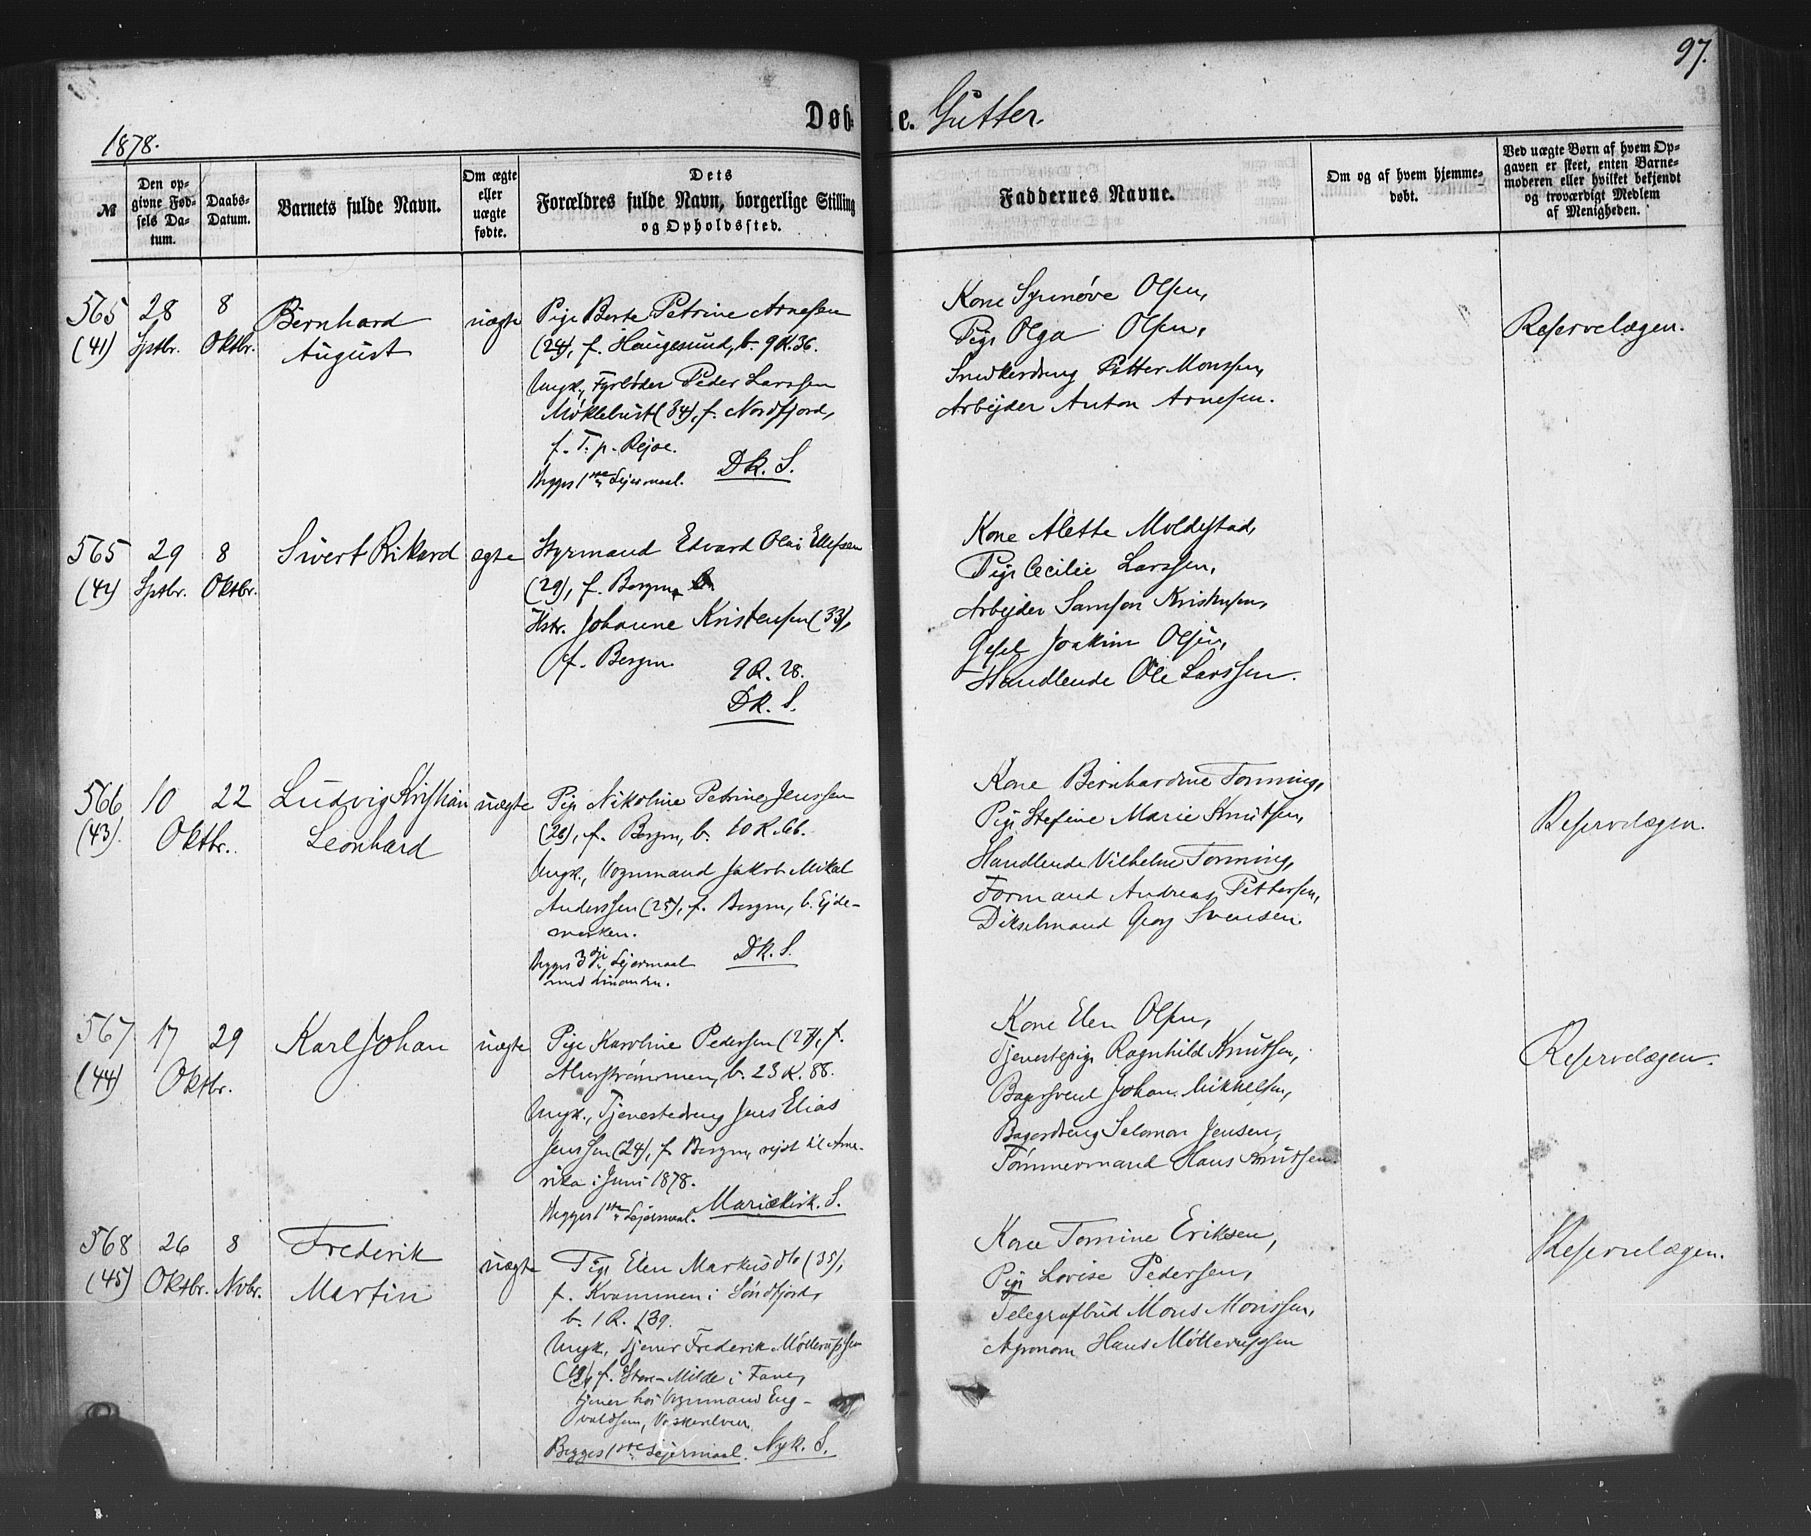 97.
1878.
Døb- te. Gutter.
№
Den op-
givne Fød-
sels Da-
tum.
Daabs-
Datum.
Barnets fulde Navn.
Om ægte
eller
uægte
fødte.
Dets
Forældres fulde Navn, borgerlige Stilling
og Opholdssted.
Faddernes Navne.
Om og af hvem hjemme-
døbt.
Ved uægte Børn af hvem Op-
gaven er skeet, enten Barne-
moderen eller hvilket bekjendt
og troværdigt Medlem
af Menigheden.
565
(41)
28
Sptbr.
8
Oktbr.
Bernhard
August
uægte
Pige Berte Petrine Arnesen
(24), f. Haugesund, b. 9 R. 36.
Ungk., Fyrbøder Peder Larssen
Møklebust (34), f. Nordfjord,
f. T. p. Rejse.
Begges 1ste Lejermaal. DK. S.
Kone Synnøve Olsen,
Pige Olga Olsen,
Snedkerdreng Petter Monssen,
Arbejder Anton Arnesen.
Reservelægen.
565
(42)
29
Sptbr.
8
Oktbr.
Sivert Rikard
ægte
Styrmand Edvard Olai Ellefsen
(29), f. Bergen,
Hstr. Johanne Kristensen (33),
f. Bergen
9 R. 28.
DK. S.
Kone Alette Moldestad,
Pige Cecilie Larssen,
Arbejder Samson Kristensen,
Gesel Joakim Olsen,
Handlende Ole Larssen.
566
(43).
10
Oktbr.
22
Ludvig Kristian
Leonhard
uægte
Pige Nikoline Petrine Jenssen
(26), f. Bergen, b. 10 R. 66.
Ungk., Vognmand Jakob Mikal
Anderssen (25), f. Bergen, b. Ejde-
marken.
Begges 3dje Lejermaal DK. S.
med hinanden.
Kone Bernhardine Tonning,
Pige Stefine Marie Knutsen,
Handlende Vilhelm Tonning,
Formand Andreas Pettersen,
Dikselmand Georg Svensen.
Reservelægen.
567
(44)
17
Oktbr.
29
Karl Johan
uægte
Pige Karoline Pedersen (27), f.
Alverstrømmen, b. 23 R. 88.
Ungk., Tjenestedreng Jens Elias
Jenssen (24), f. Bergen, rejst til Ame-
rika i Juni 1878.
Begges 1ste Lejermaal. Mariekirk. S.
Kone Elen Olsen,
Tjenestepige Ragnhild Knutsen,
Bagersvend Johan Mikkelsen,
Bagerdreng Salomon Jensen,
Tømmermand Hans Knutsen.
Reservelægen.
568
(45)
26
Oktbr.
8
Nvbr.
Frederik
Martin
uægte
Pige Elen Markusdtr (35),
f. Kvammen i Søndfjord,
b. 1 R. 139.
Ungk. Tjener Frederik Møllerupssen
f. Store-Milde i Fane,
tjener hos Vognmand Eng-
valdsen,
Begges 1ste Lejermaal. Nyk. S.
Kone Tomine Eriksen,
Pige Lovise Pedersen,
Telegrafbud Mons Monssen,
Agronom Hans Møllerupssen
Reservelægen.